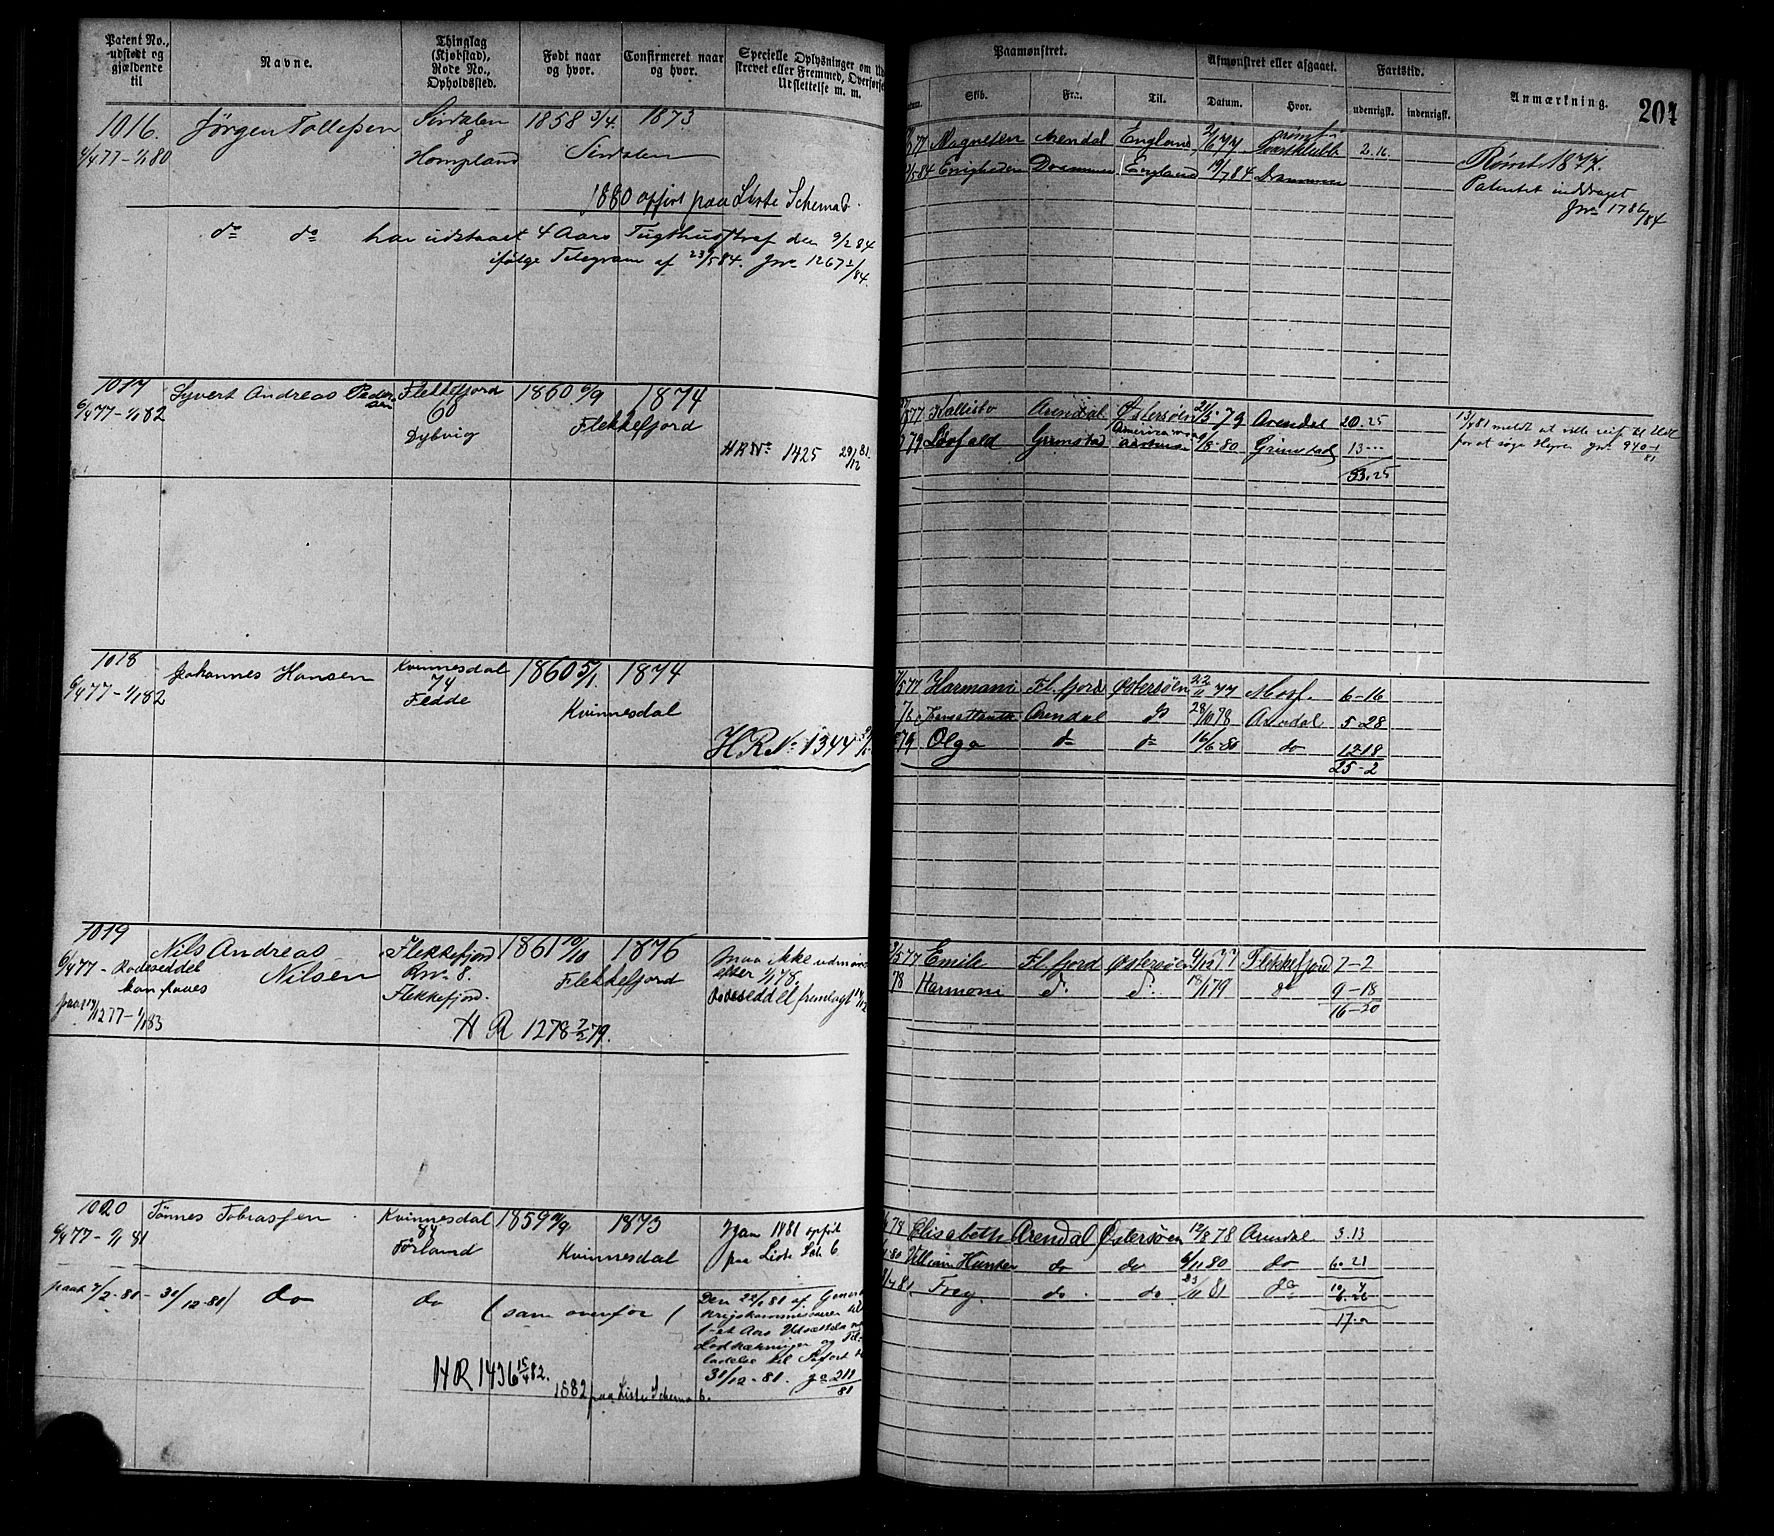 Patent No., udstedt og gjældende til
Navne.
Thinglag (Kjøbstad), Rode No., Opholdssted.
Født naar og hvor.
Confirmeret naar og hvor.
Specielle Oplysninger om Ud
strevet eller Fremmed, Overførsel
Udslettelse m. m.
Paamønstret.
Skib.
Fra.
Til.
Afmønstret eller afgaaet.
Datum.
Hvor.
Fartstid.
udenrigsk.
indenrigsk.
Anmærkning.
207
1016.
4/4 77 - 1/1 80
Jørgen Tollefsen
Sirdalen
8
Hompland
1858 3/4.
1873
Sirdalen
1880 opført paa Liste Schema 6.
do do har udstaaet 4 Aars Tugthusstraf den 9/2 84
ifølge Telegram af 23/5 84. Jnr. 1267 2/84.
77 Magneten Arendal England 2.16.
5 84 Enigheden Drammen England 19/7 84 Drammen
Rømt 1877.
Patentet inddraget
Jnr 1786/84
1017
6/4 77 - 1/1 82
Syvert Andreas Pedersen
Flekkefjord
60
Dybvig
1860 6/9
1874
Flekkefjord
HR No 1425 29/12 81.
77 Kallisto Arendal Østersøen 21/5 - 79 Arendal 20.25
79 Løvfald Grimstad 9/8 - 80 Grimstad 13 --
33.25
13/4 81 meldt at ville reise til Udl
for at søge Hyre Jnr. 940/81
1018
6/4 77 - 1/1 82
Johannes Hansen
Kvinnesdal
74
Fedde
1860 5/1
1874
Kvinnesdal
HR No 1344
7/5 77 Harmoni Fl.fjord Østersøen 22/11 77 Moss. 6-16
78 Arendal do 28/10 78 Arendal 5-28
79 Olga do do 16/6 - 80 do 12 18
25-2
1019
6/4 77 - Rodeseddel
kan faaes
paa 14/12 77 - 1/1 83
Nils Andreas
Nilsen
Flekkefjord
Rnr. 8.
Flekkefjord.
1861 19/10
1876
Flekkefjord
Maa ikke udmøn
efter 1/1 78,
Rodeseddel fremlagt 14/12
HR 1278 7/2 79.
5 77 Emilie Fl. fjord Østersøen 4/12 77 Flekkefjord 7-2
78 Harmoni do. do. 18/1 79 do 9-18
16-20
1020
6/4 77 - 1/1 81
Tønnes Tobiassen
Kvinnesdal
84
Førland
1859 9/9
1873
Kvinnesdal
Jan 1881 opført
paa Liste Litr 6
78 Elisabeth Arendal Østersøen 12/8 78 Arendal 3.13
80 William Hunter do do 6/11 80 do 6.21
81. Frey. do. do 23/11 81 do
17.
paat 7/2 - 80 - 31/12 - 81) do
do
(som ovenfor)
Den 22/1 81 af General
krigskommissairen til
1-et Aars Udsættelse
Lodtrækninger og Til-
ladelse til Skifart
31/12 - 81. Jno 211/81
HR 1436 15/4 82.
1882 paa Liste Schema 6.